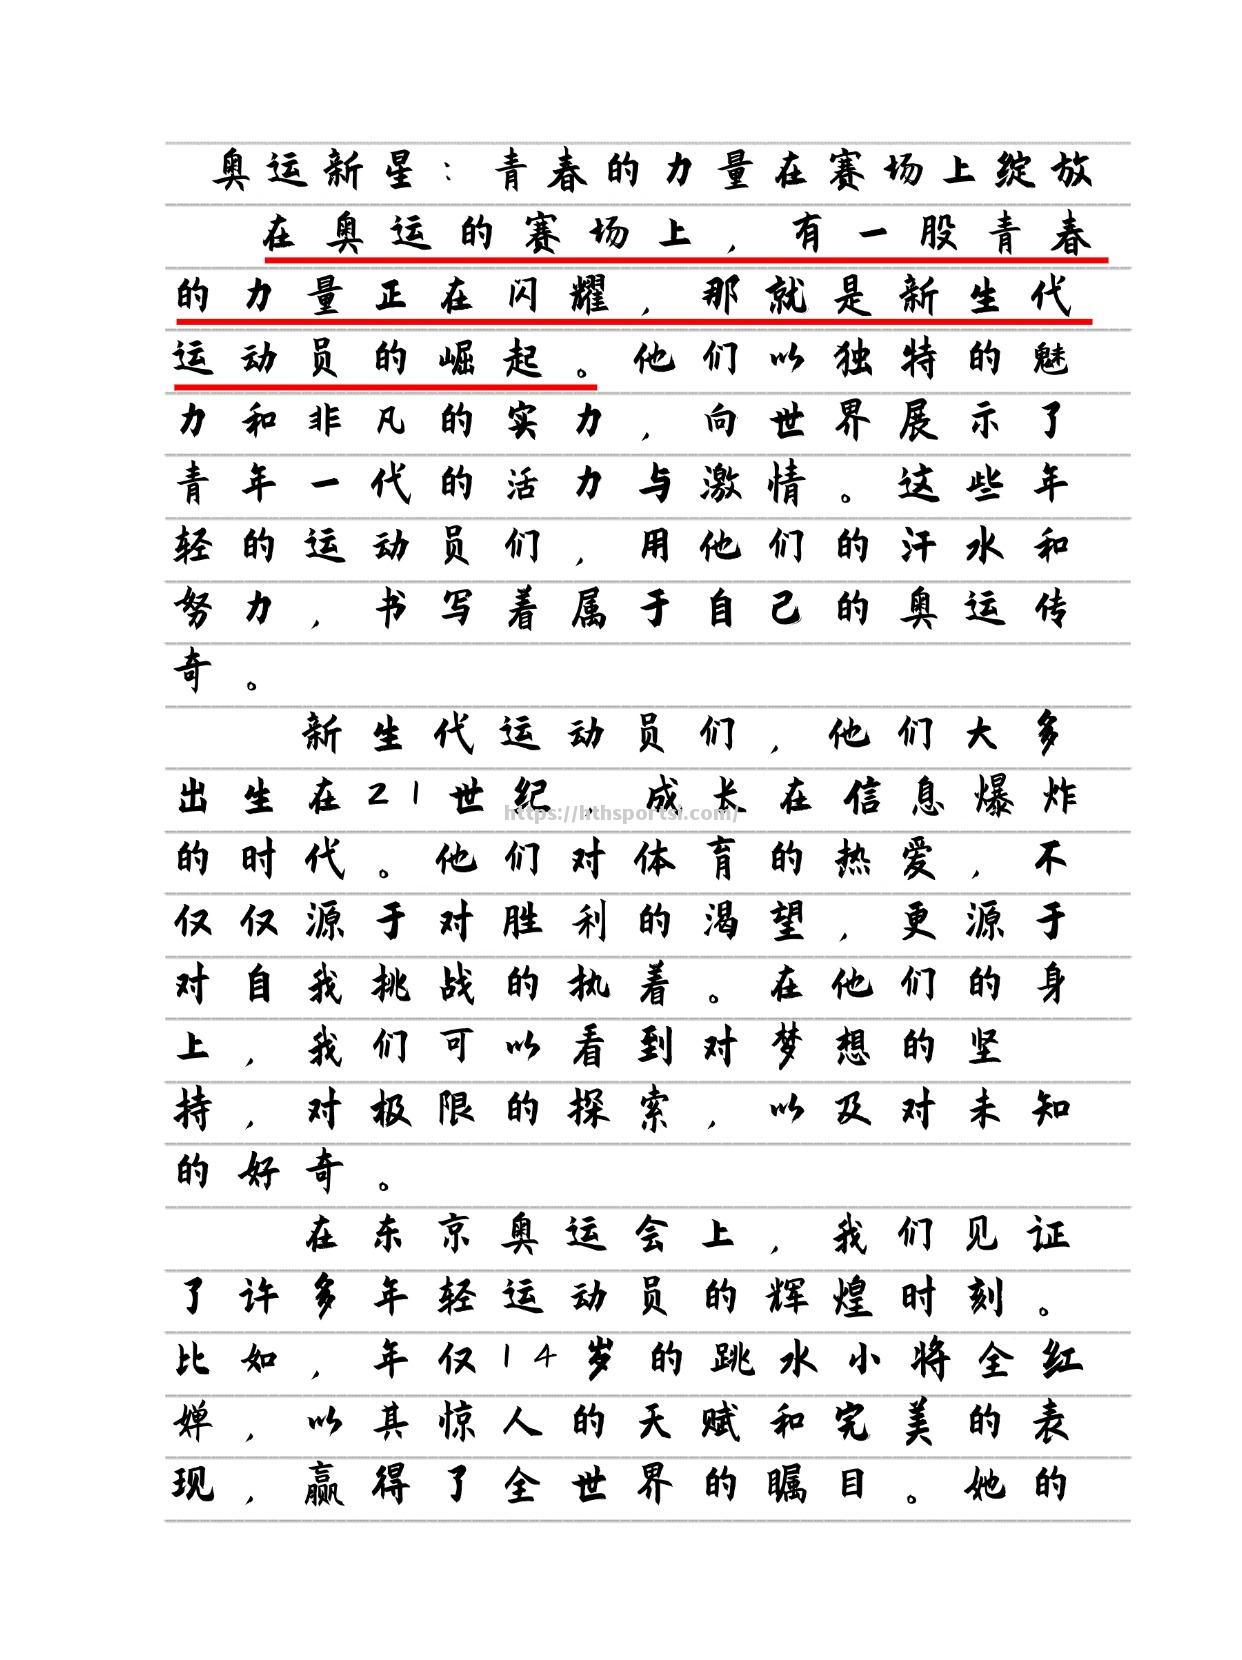 奥运新星：青春的力量在赛场上绽放
在奥运的赛场上，有一股青春
的力量正在闪耀，那就是新生代
运动员的崛起。他们以独特的魅
力和非凡的实力，向世界展示了
青年一代的活力与激情。这些年
轻的运动员们，用他们的汗水和
努力，书写着属于自己的奥运传
奇。
新生代运动员们，他们大多
出生在21世纪，成长在信息爆炸
https://hthsportsl.com/
的时代。他们对体育的热爱，不
仅仅源于对胜利的渴望，更源于
对自我挑战的执着。在他们的身
上，我们可以看到对梦想的坚
持，对极限的探索，以及对未知
的好奇。
在东京奥运会上，我们见证
了许多年轻运动员的辉煌时刻。
比如，年仅14岁的跳水小将全红
婵，以其惊人的天赋和完美的表
现，赢得了全世界的瞩目。她的